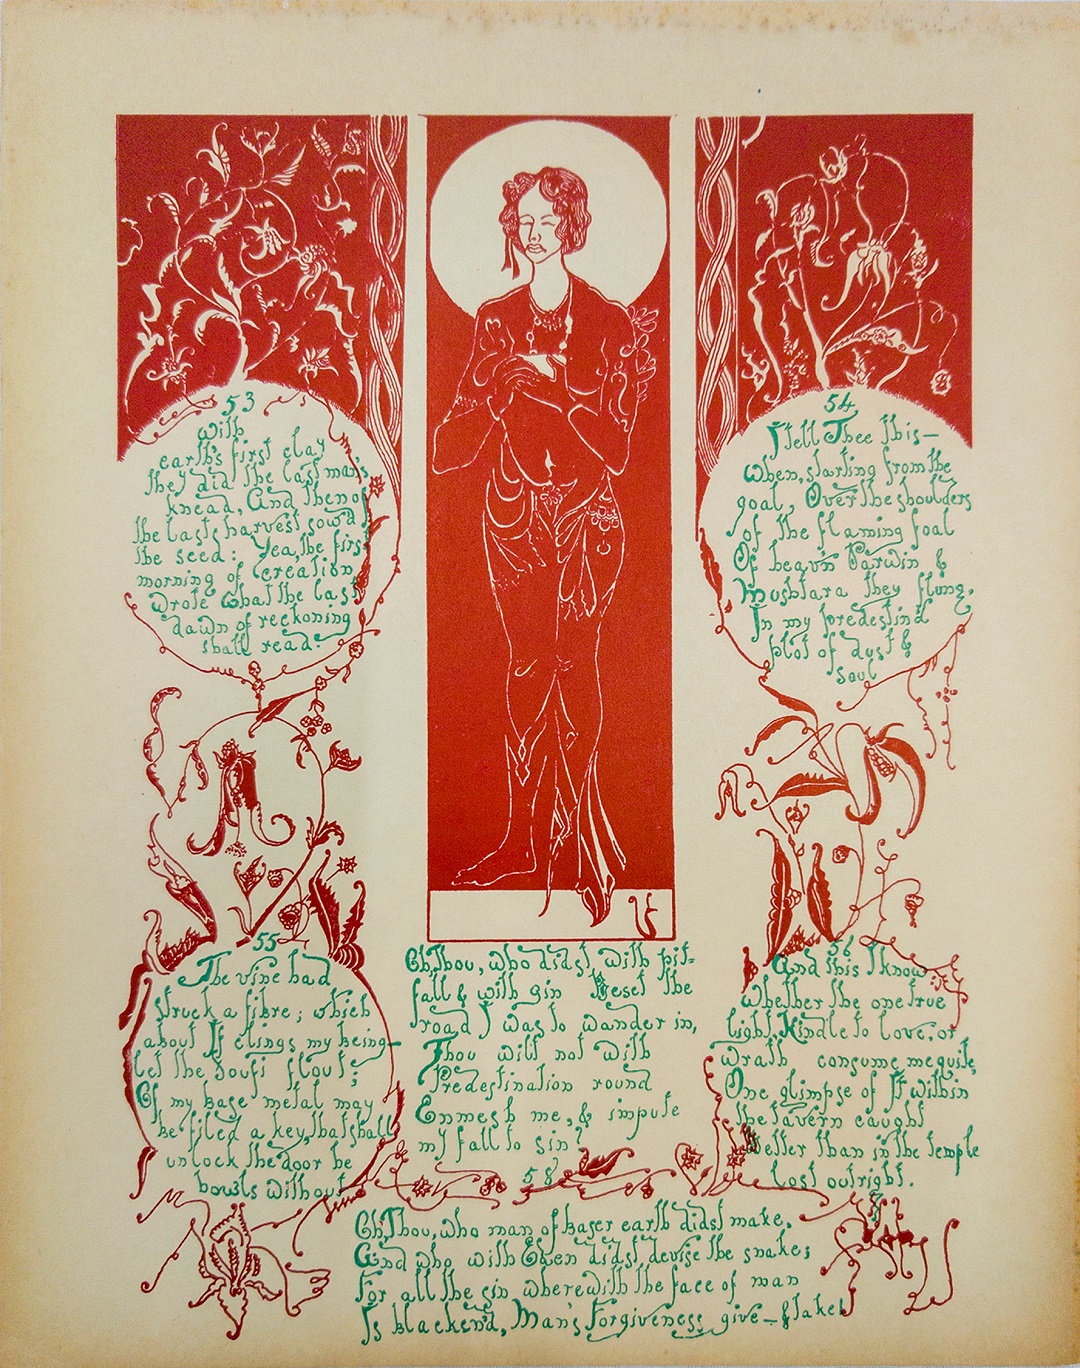 53
With
earth's first clay
they did the last man's
knead, And then of
the last harvest sow'd
the seed: Yea, the first
morning of Creation
wrote What the Last
dawn of reckoning
shall read.
54
I tell Thee this—
When, starting from the
goal, Over the shoulders
of the flaming foal
Of heav'n Parwin &
Mushtara they flung.
In my predestin'd
plot of dust &
soul
55
The vine had
struck a fibre; which
about It clings my being—
let the Soufi flout;
Of my base metal may
be filed a key, that shall
unlock the door he
howls without
56
And this I know:
Whether the one true
light, Kindle to love, or
wrath consume me quite,
One glimpse of It within
the tavern caught
Better than in the temple
lost outright.
Oh, Thou, who didst with pit-
fall & with gin Beset the
road I was to wander in,
Thou wilt not with
Predestination round
Enmesh me, & impute
my fall to sin?
58
Oh, Thou, who man of baser earth didst make,
And who with Eden didst devise the snake;
For all the sin wherewith the face of man
Is blacken'd, Man's Forgiveness give—& take!